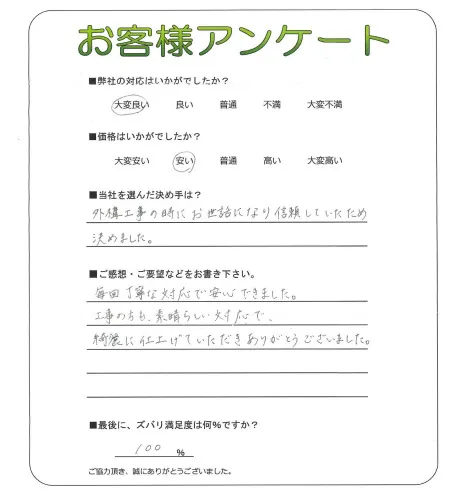 お客様アンケート
■弊社の対応はいかがでしたか?
大変良い 良い 普通 不満 大変不満
■価格はいかがでしたか?
大変安い 安い 普通 高い 大変高い
■当社を選んだ決め手は?
外構工事の時にお世話になり信頼していたため
決めました。
■ご感想・ご要望などをお書き下さい。
毎回丁寧な対応で安心できました。
工事の方も、素晴らしい対応で、
綺麗に仕上げていただきありがとうございました。
■最後に、ズバリ満足度は何%ですか?
100 %
ご協力頂き、誠にありがとうございました。